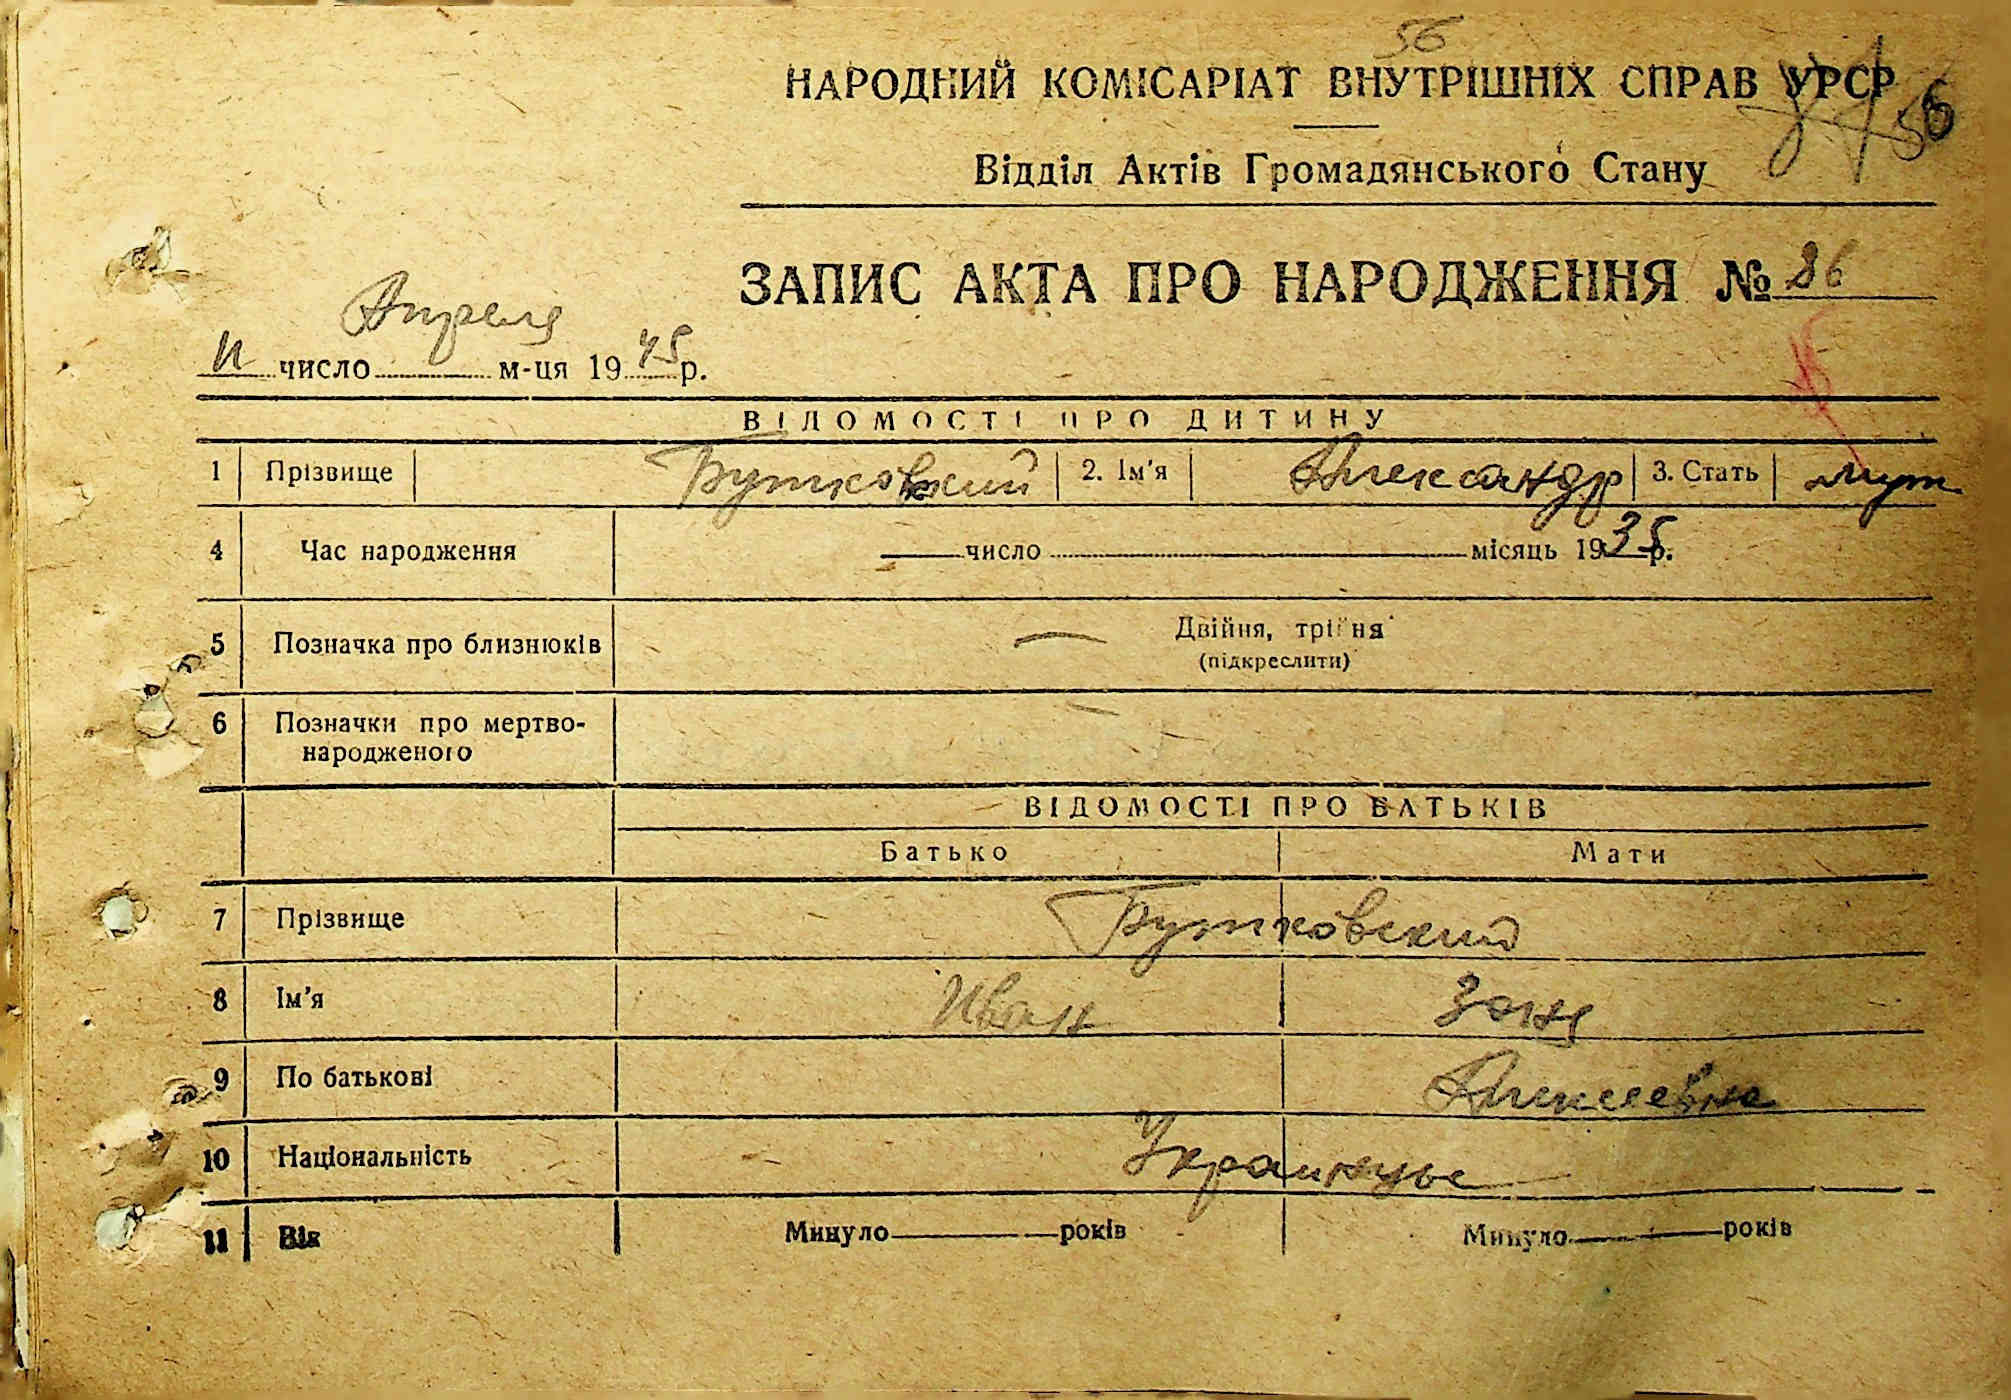 56
НАРОДНИЙ КОМІСАРІАТ ВНУТРІШНІХ СПРАВ УРСР
56
Відділ Актів Громадянського Стану
ЗАПИС АКТА ПРО НАРОДЖЕННЯ № 86
11 число Апреля м-ця 1945 р.
ВІДОМОСТІ ПРО ДИТИНУ
1 Прізвище Бутковский 2. Ім'я Александр 3. Стать муж
4 Час народження число місяць 1935 р.
5 Позначка про близнюків — Двійня, трійня
(підкреслити)
6 Позначки про мертво-
народженого
ВІДОМОСТІ ПРО БАТЬКІВ
Батько Мати
7 Прізвище Бутковский
8 Ім'я Иван Зоня
9 По батькові Алексеевна
10 Національність Украинцы
11 Вік Минуло років Минуло років